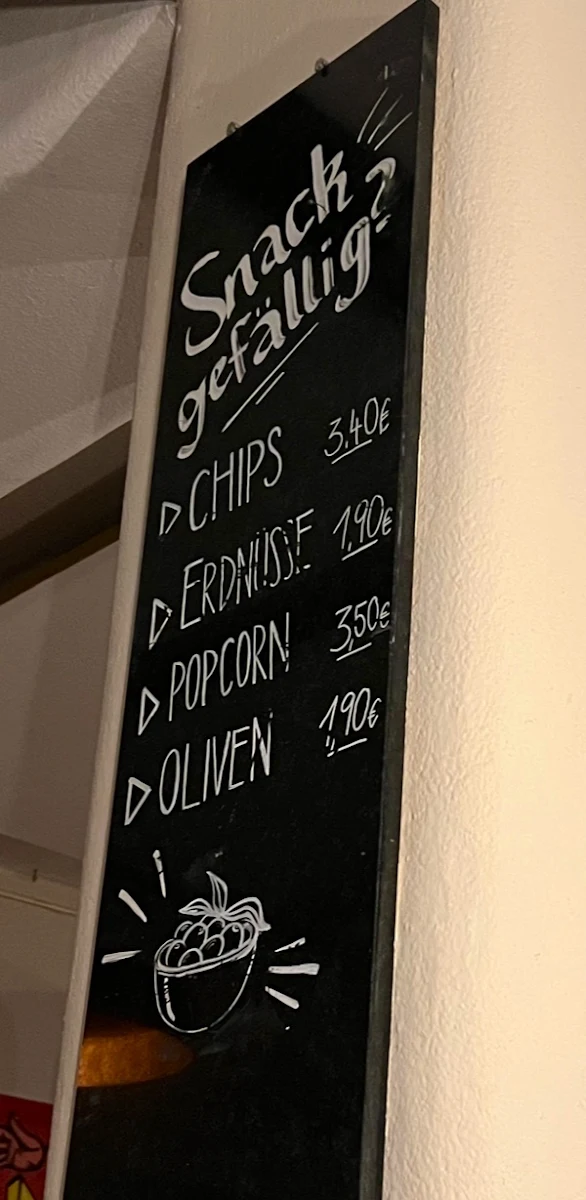 Snack
gefällig?
CHIPS 3,40€
ERDNÜSSE 1,90€
POPCORN 3,50€
OLIVEN 1,90€